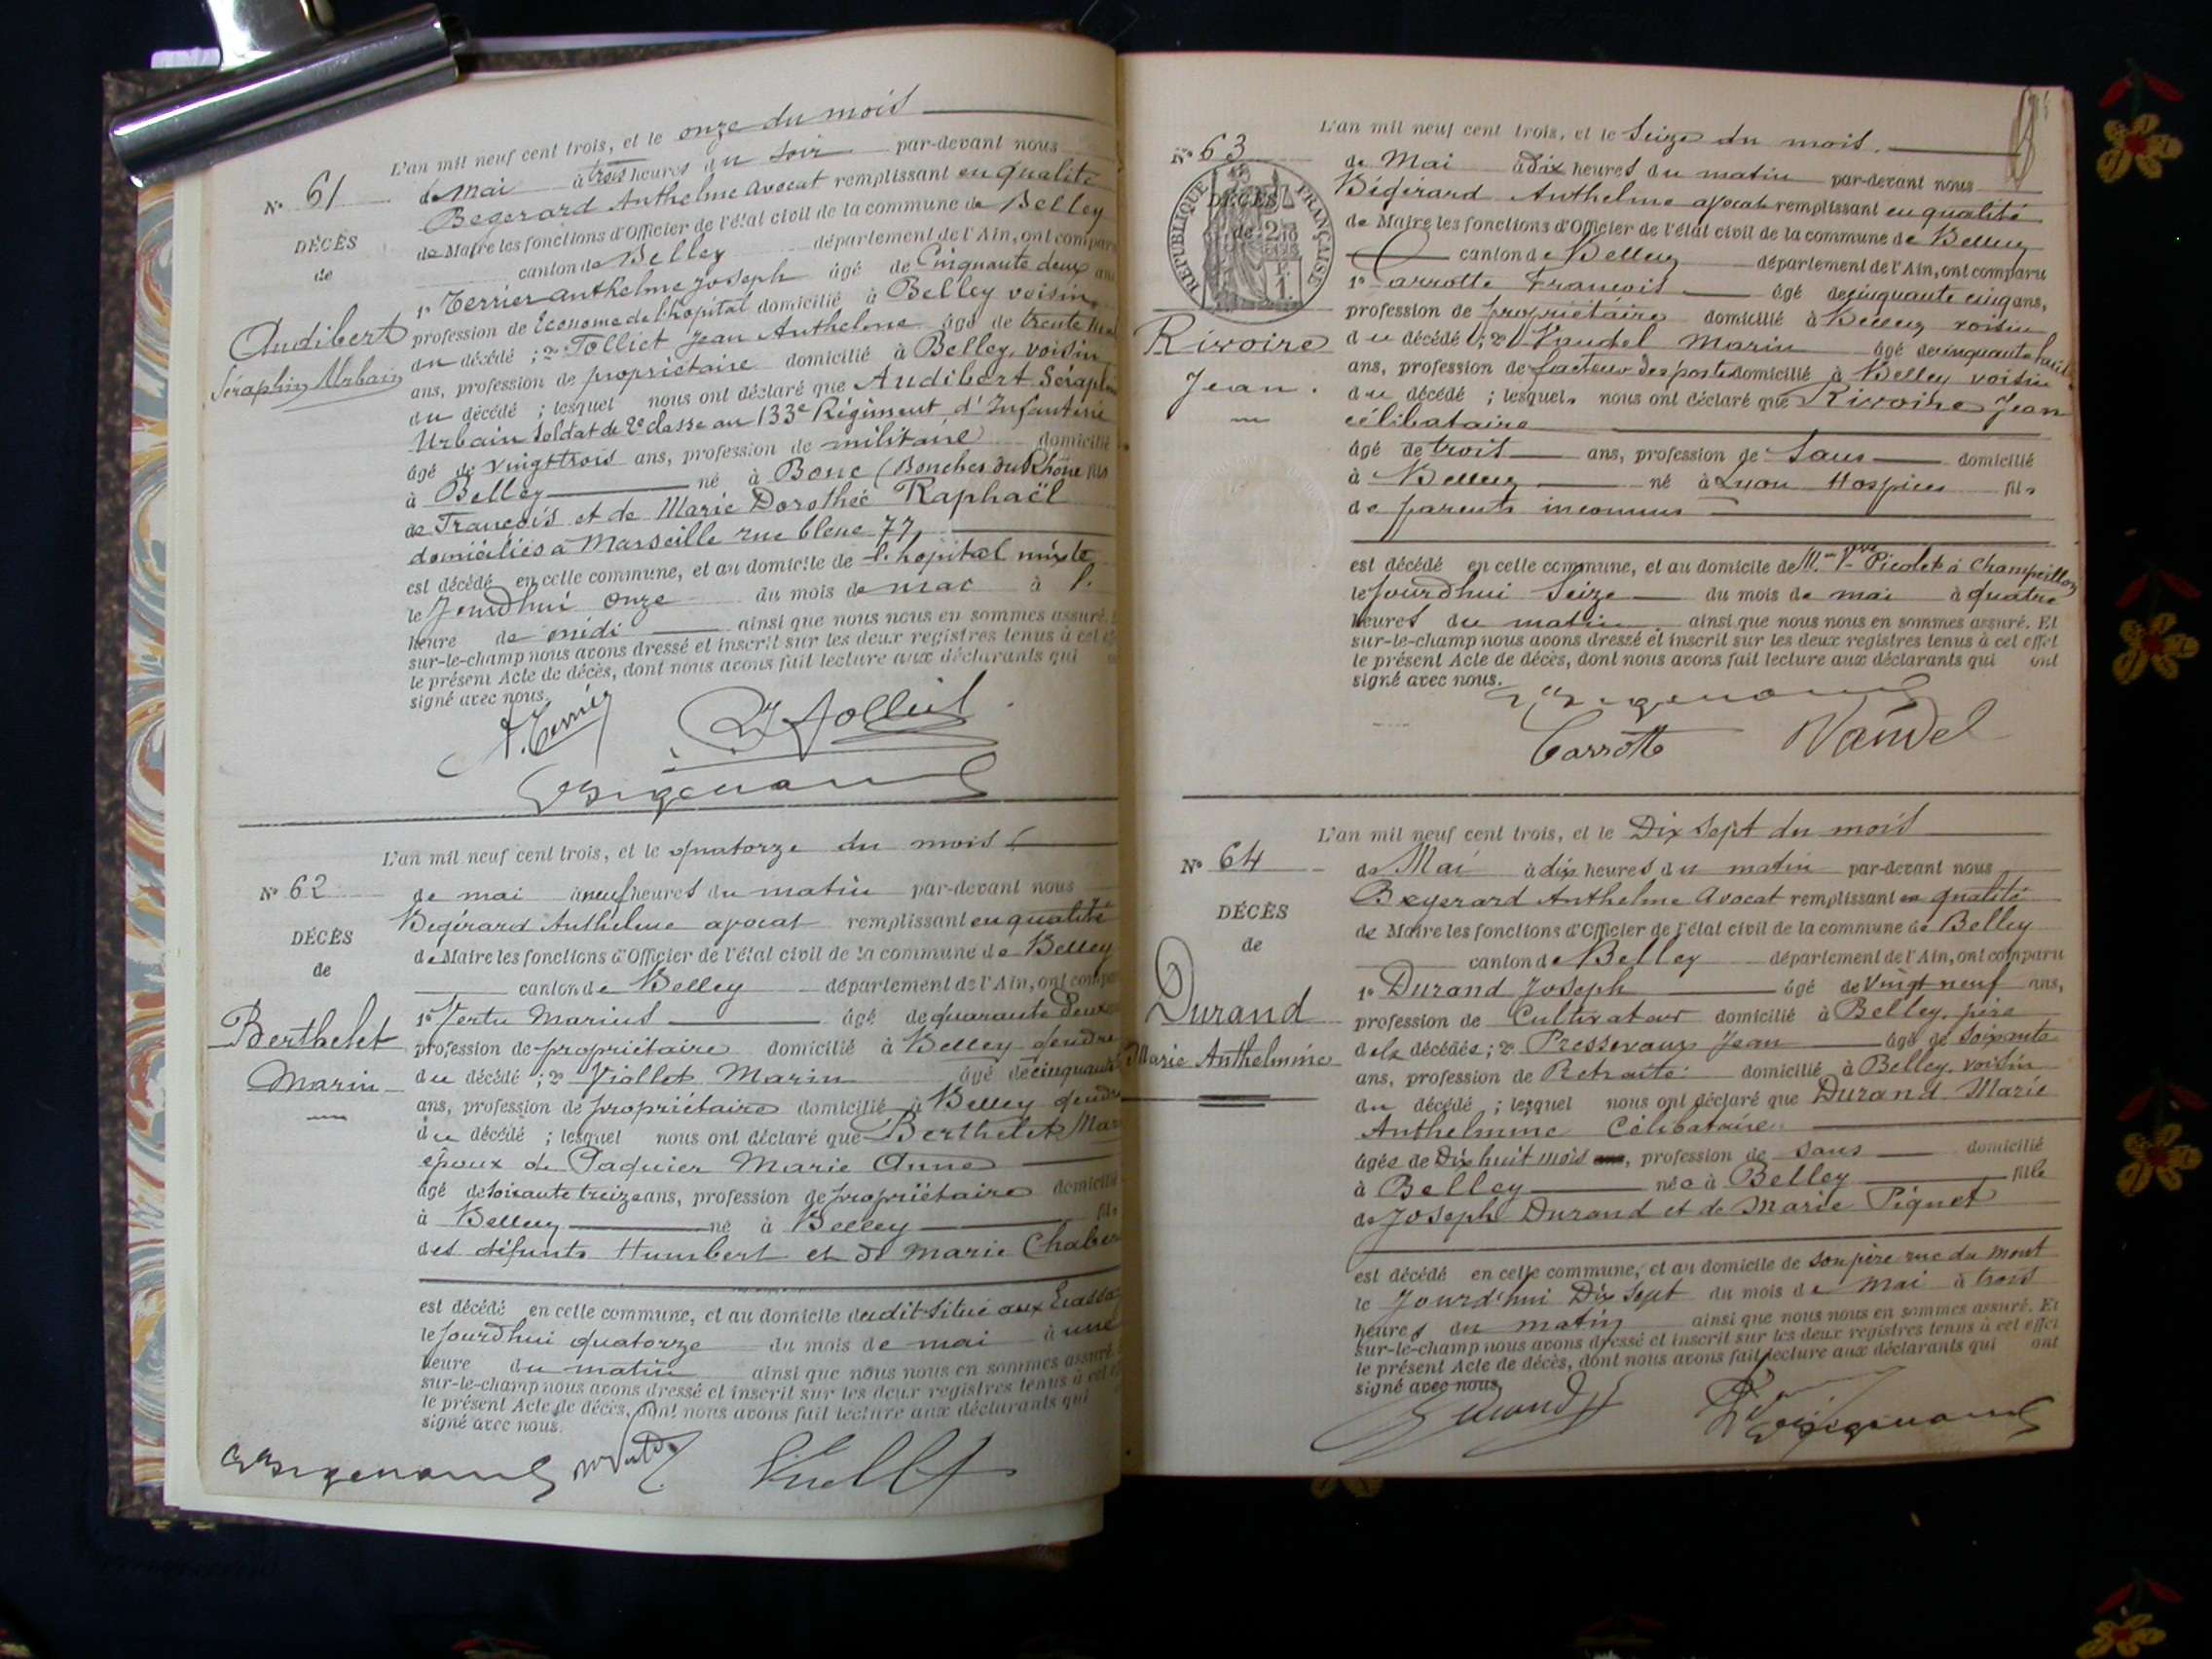 L'an mil neuf cent trois, et le onze du mois
N° 61
de Mai à trois heures du soir par-devant nous
Begerard Anthelme Avocat remplissant en qualité
de Maire les fonctions d'Officier de l'état civil de la commune de Belley
DÉCÈS
canton de Belley département de l'Ain, ont comparu
de
1° Terrier Anthelme Joseph âgé de Cinquante deux ans
Audibert
profession de Econome de l'hopital domicilié à Belley voisin
Séraphin Urbain
du décédé ; 2° Tolliet Jean Anthelme âgé de trente
ans, profession de propriétaire domicilié à Belley, voisin
du décédé ; lesquel nous ont déclaré que Audibert Séraphin
Urbain Soldat de 2e classe au 133e Régiment d'Infanterie
âgé de vingt trois ans, profession de militaire domicilié
à Belley né à Bouc (Bouches du Rhône fils
de François et de Marie Dorothée Raphaël
domiciliés à Marseille rue bleue 77,
est décédé en cette commune, et au domicile de l'hopital mixte
le Jourdhui onze du mois de mai à 1.
heure de midi ainsi que nous nous en sommes assuré.
sur-le-champ nous avons dressé et inscrit sur les deux registres tenus à cet
le présent Acte de décès, dont nous avons fait lecture aux déclarants qui
signé avec nous.
A. Terrier
J Tolliet
Begerard
L'an mil neuf cent trois, et le quatorze du mois
N° 62
de mai à neuf heures du matin par-devant nous
Bégérard Anthelme avocat remplissant en qualité
DÉCÈS
de Maire les fonctions d'Officier de l'état civil de la commune de Belley
de
canton de Belley département de l'Ain, ont
1° Vertu Marius âgé de quarante deux
Berthelet
profession de propriétaire domicilié à Belley gendre
Marin
du décédé ; 2° Viollet Marin âgé de cinquante
ans, profession de propriétaire domicilié à Belley gendre
du décédé ; lesquel nous ont déclaré que Berthelet Mar
époux de Paquier Marie Anne
âgé de soixante treize ans, profession de propriétaire domicilié
à Belley né à Belley fils
des défunts Humbert et de Marie Chaber
est décédé en cette commune, et au domicile dudit situé aux
le Jourdhui quatorze du mois de mai à une
heure du matin ainsi que nous nous en sommes assuré.
sur-le-champ nous avons dressé et inscrit sur les deux registres tenus à cet
le présent Acte de décès, dont nous avons fait lecture aux déclarants qui
signé avec nous.
Begerard
Viollet
L'an mil neuf cent trois, et le Seize du mois.
N° 63
de Mai à Dix heures du matin par-devant nous
Bégérard Anthelme avocat remplissant en qualité
de Maire les fonctions d'Officier de l'état civil de la commune de Belley
RÉPUBLIQUE FRANÇAISE
DÉCÈS
de
canton de Belley département de l'Ain, ont comparu
1° Carrotte François âgé de cinquante cinq ans,
profession de propriétaire domicilié à Belley voisin
Rivoire
du décédé ; 2° Vaudel Marin âgé de cinquante huit
Jean.
ans, profession de facteur des postes domicilié à Belley voisin
du décédé ; lesquels nous ont déclaré que Rivoire Jean
célibataire
âgé de trois ans, profession de Sans domicilié
à Belley né à Lyon Hospices fils
de parents inconnus
est décédé en cette commune, et au domicile de Mme Vve Picolet à Champeillon
le Jourdhui Seize du mois de mai à quatre
heures du matin ainsi que nous nous en sommes assuré. Et
sur-le-champ nous avons dressé et inscrit sur les deux registres tenus à cet effet
le présent Acte de décès, dont nous avons fait lecture aux déclarants qui ont
signé avec nous.
Begerard
Carrotte
Vaudel
L'an mil neuf cent trois, et le Dix Sept du mois
N° 64
de Mai à dix heures du matin par-devant nous
Begerard Anthelme Avocat remplissant en qualité
DÉCÈS
de Maire les fonctions d'Officier de l'état civil de la commune de Belley
de
canton de Belley département de l'Ain, ont comparu
1° Durand Joseph âgé de vingt neuf ans,
Durand
profession de Cultivateur domicilié à Belley, père
Marie Anthelmine
de la décédée ; 2° Pressavaux Jean âgé de soixante
ans, profession de Retraité domicilié à Belley, voisin
du décédé ; lesquel nous ont déclaré que Durand Marie
Anthelmine Célibataire
âgée de Dix huit mois ans, profession de sans domicilié
à Belley née à Belley fille
de Joseph Durand et de Marie Piquet
est décédé en cette commune, et au domicile de son père rue du Mont
le Jourd'hui Dix Sept du mois de Mai à trois
heures du matin ainsi que nous nous en sommes assuré. Et
sur-le-champ nous avons dressé et inscrit sur les deux registres tenus à cet effet
le présent Acte de décès, dont nous avons fait lecture aux déclarants qui ont
signé avec nous.
Durand J
Begerard